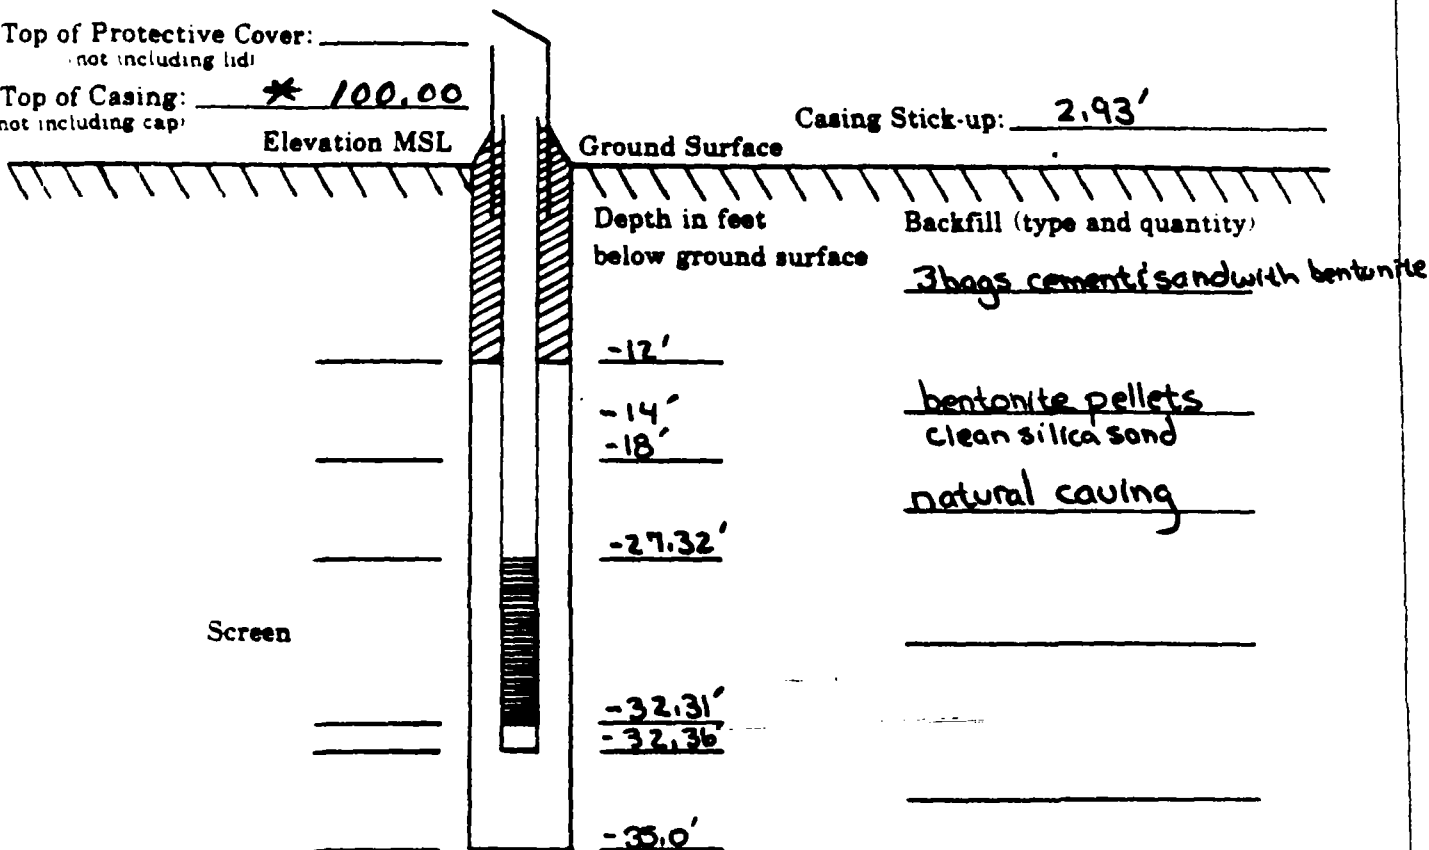 Top of Protective Cover:
not including lid)
Top of Casing: * 100.00
not including cap)
Casing Stick-up: 2.93'
Elevation MSL
Ground Surface
Depth in feet
below ground surface
Backfill (type and quantity)
3 bags cement & sand with bentonite
-12'
-14'
bentonite pellets
-18'
clean silica sand
natural caving
-27.32'
Screen
-32.31'
-32.36'
-35.0'